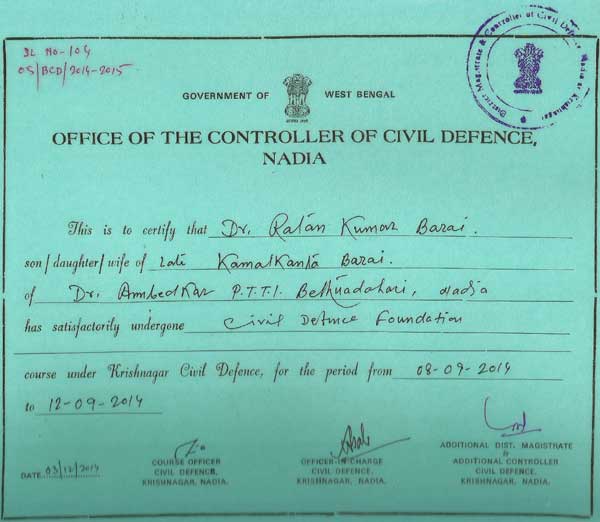 SL No-104
05/BCD/2014-2015
District Magistrate & Controller of Civil Defence Nadia at Krishnagar
GOVERNMENT OF WEST BENGAL
OFFICE OF THE CONTROLLER OF CIVIL DEFENCE,
NADIA
This is to certify that Dr. Ratan Kumar Barai.
son/daughter/wife of Late Kamalkanta Barai.
of Dr. Ambedkar P.T.T.I. Bethuadahari, Nadia
has satisfactorily undergone Civil Defence Foundation
course under Krishnagar Civil Defence, for the period from 08-09-2014
to 12-09-2014
DATE 03/12/2014
COURSE OFFICER
CIVIL DEFENCE,
KRISHNAGAR, NADIA.
OFFICER-IN-CHARGE
CIVIL DEFENCE,
KRISHNAGAR, NADIA.
ADDITIONAL DIST. MAGISTRATE
&
ADDITIONAL CONTROLLER
CIVIL DEFENCE,
KRISHNAGAR, NADIA.